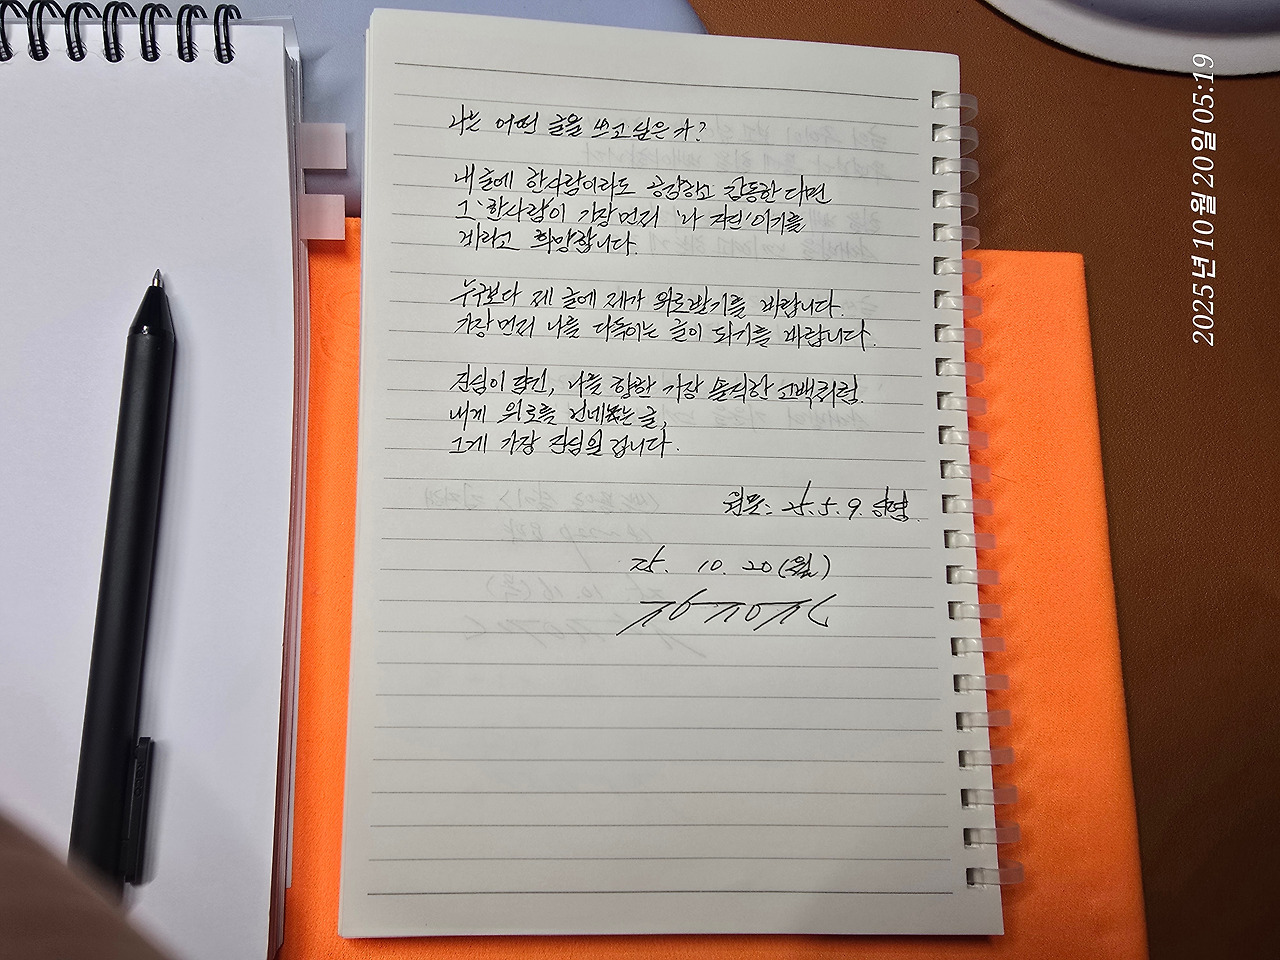 나는 어떤 글을 쓰고 싶은가?
내 글에 한사람이라도 공감하고 감동한다면
그 '한사람'이 가장먼저 '나 자신'이기를
바라고 희망합니다.
누구보다 제 글에 제가 위로받기를 바랍니다.
가장먼저 나를 다독이는 글이 되기를 바랍니다.
진심이 담긴, 나를 향한 가장 솔직한 고백처럼.
내게 위로를 건네는 글,
그게 가장 진심일 겁니다.
원문: 25. 5. 9.
25. 10. 20(월)
2025년 10월 20일 05:19